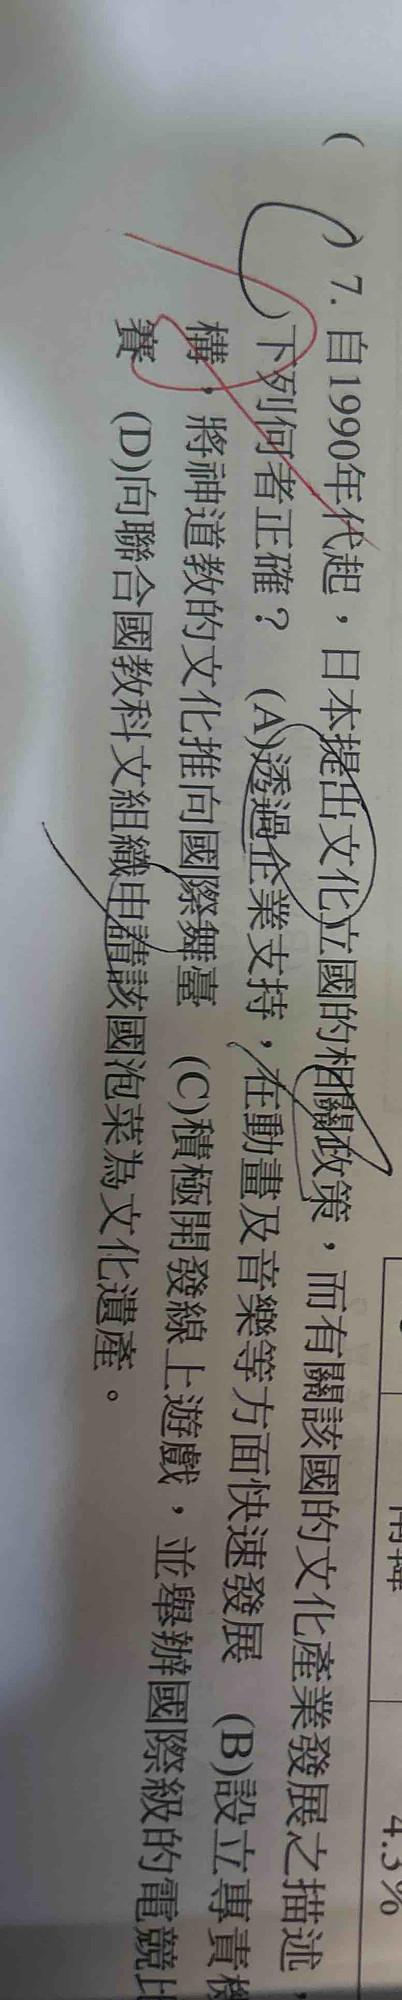 ( ) 7. 自1990年代起，日本提出文化立國的相關政策，而有關該國的文化產業發展之描述，
下列何者正確？ (A)透過企業支持，在動畫及音樂等方面快速發展 (B)設立專責機
構，將神道教的文化推向國際舞臺 (C)積極開發線上遊戲，並舉辦國際級的電競比
賽 (D)向聯合國教科文組織申請該國泡菜為文化遺產。
4.3%